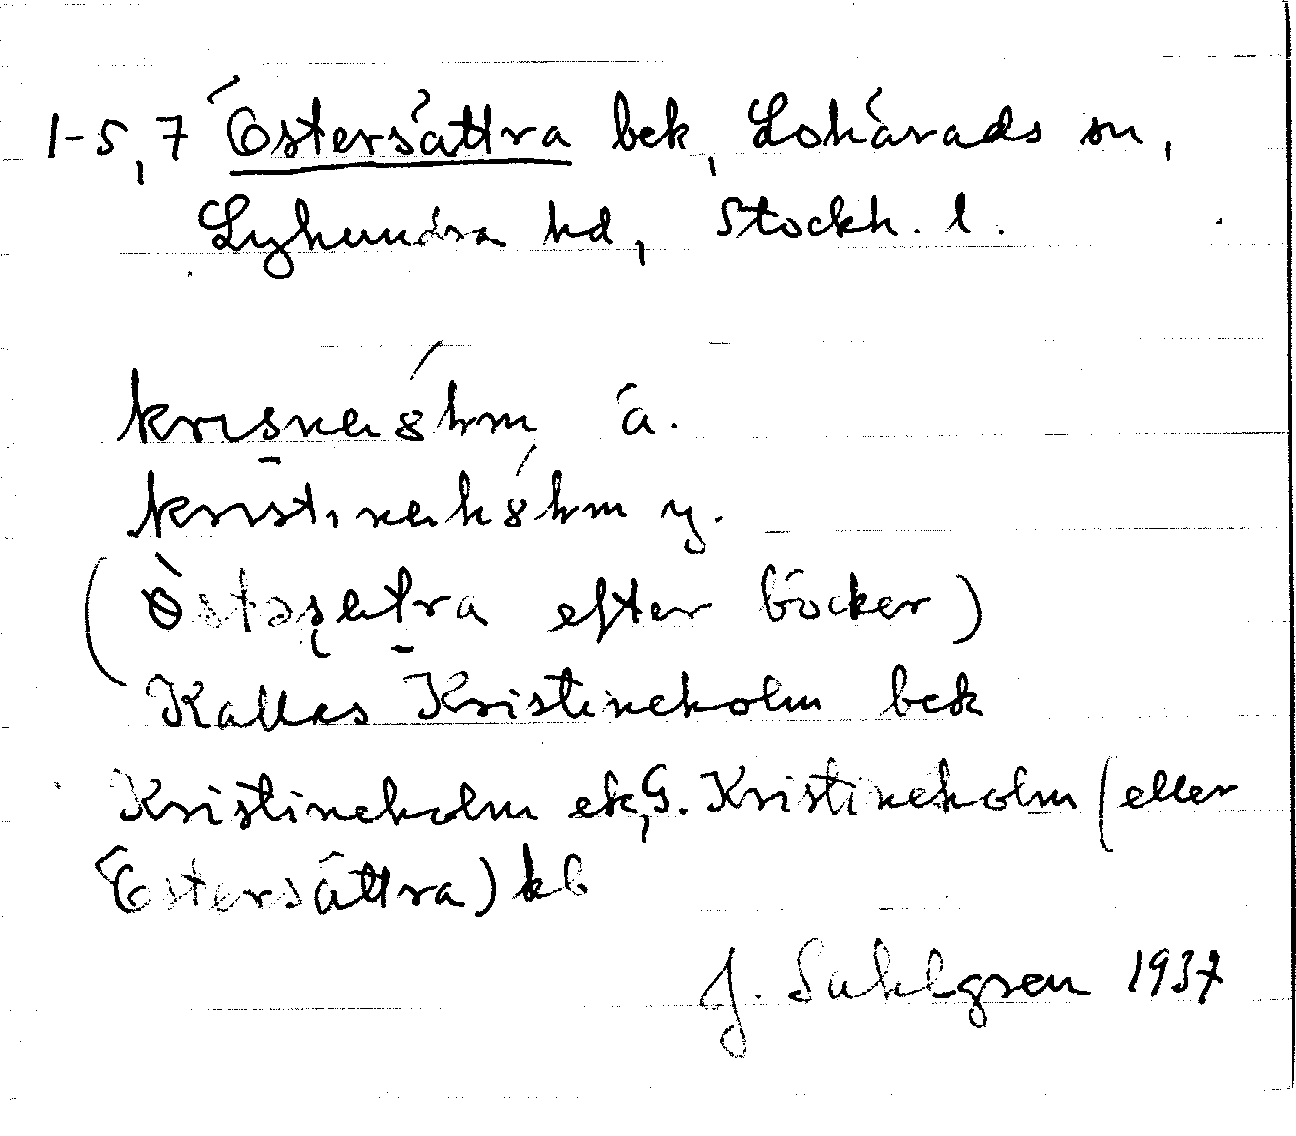 1-5,7 Östersättra bek, Lohärads sn,
Lyhundra hd, Stockh. l.
krisnehólm ä.
kristinehólm y.
(Östasätra efter böcker)
Kallas Kristineholm bek
Kristineholm ek, G. Kristineholm (eller
Östersättra) kb
J. Sahlgren 1937